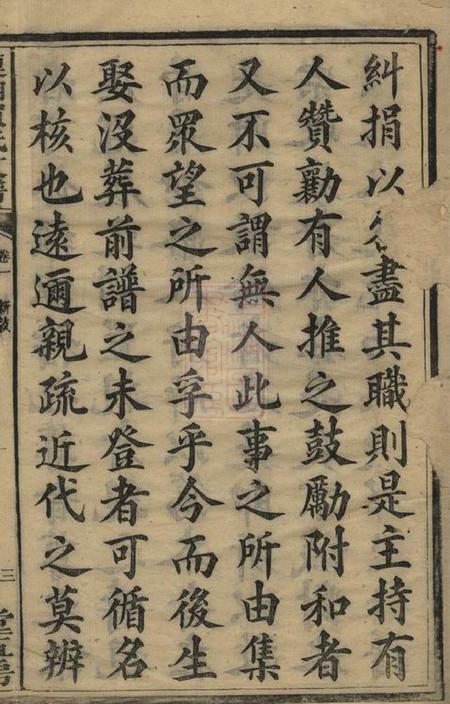 糾捐以各盡其職則是主持有
人贊勸有人推之鼓勵附和者
又不可謂無人此事之所由集
而眾望之所由孚乎今而後生
娶沒葬前譜之未登者可循名
以核也遠邇親疏近代之莫辨
卷一
三